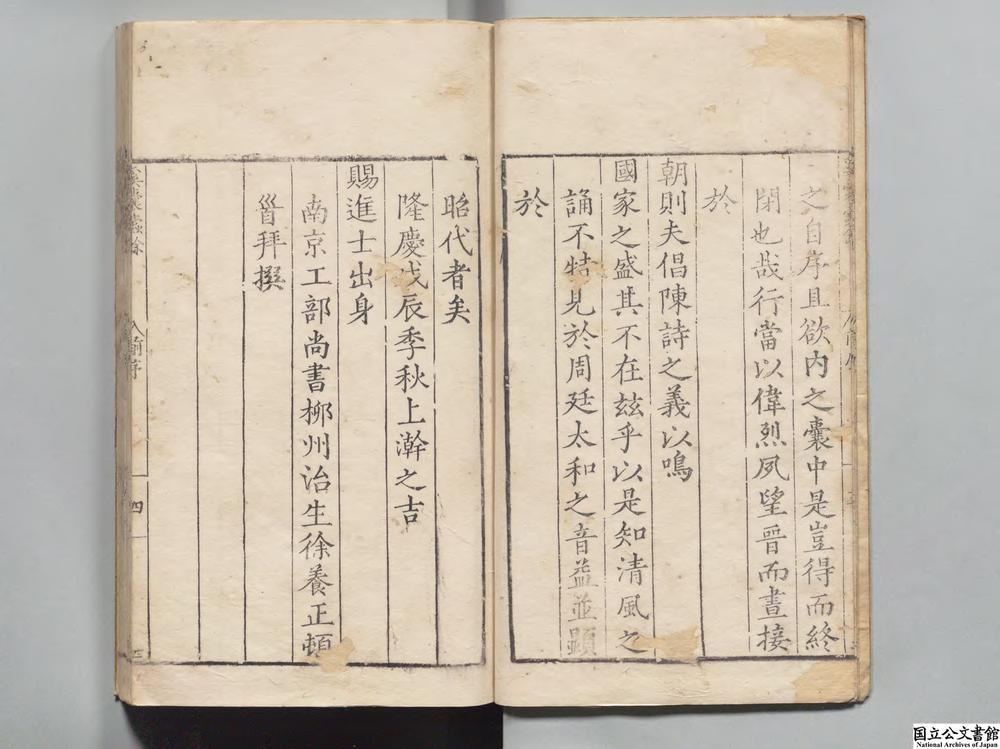 之自序且欲内之囊中是豈得而終
閑也哉行當以偉烈夙望晉而晝接
於
朝則夫倡陳詩之義以鳴
國家之盛其不在兹乎以是知清風之
誦不特見於周廷太和之音益並顯
於
昭代者矣
隆慶戊辰季秋上澣之吉
賜進士出身
南京工部尚書柳州治生徐養正頓
首拜撰
四
国立公文書館
National Archives of Japan